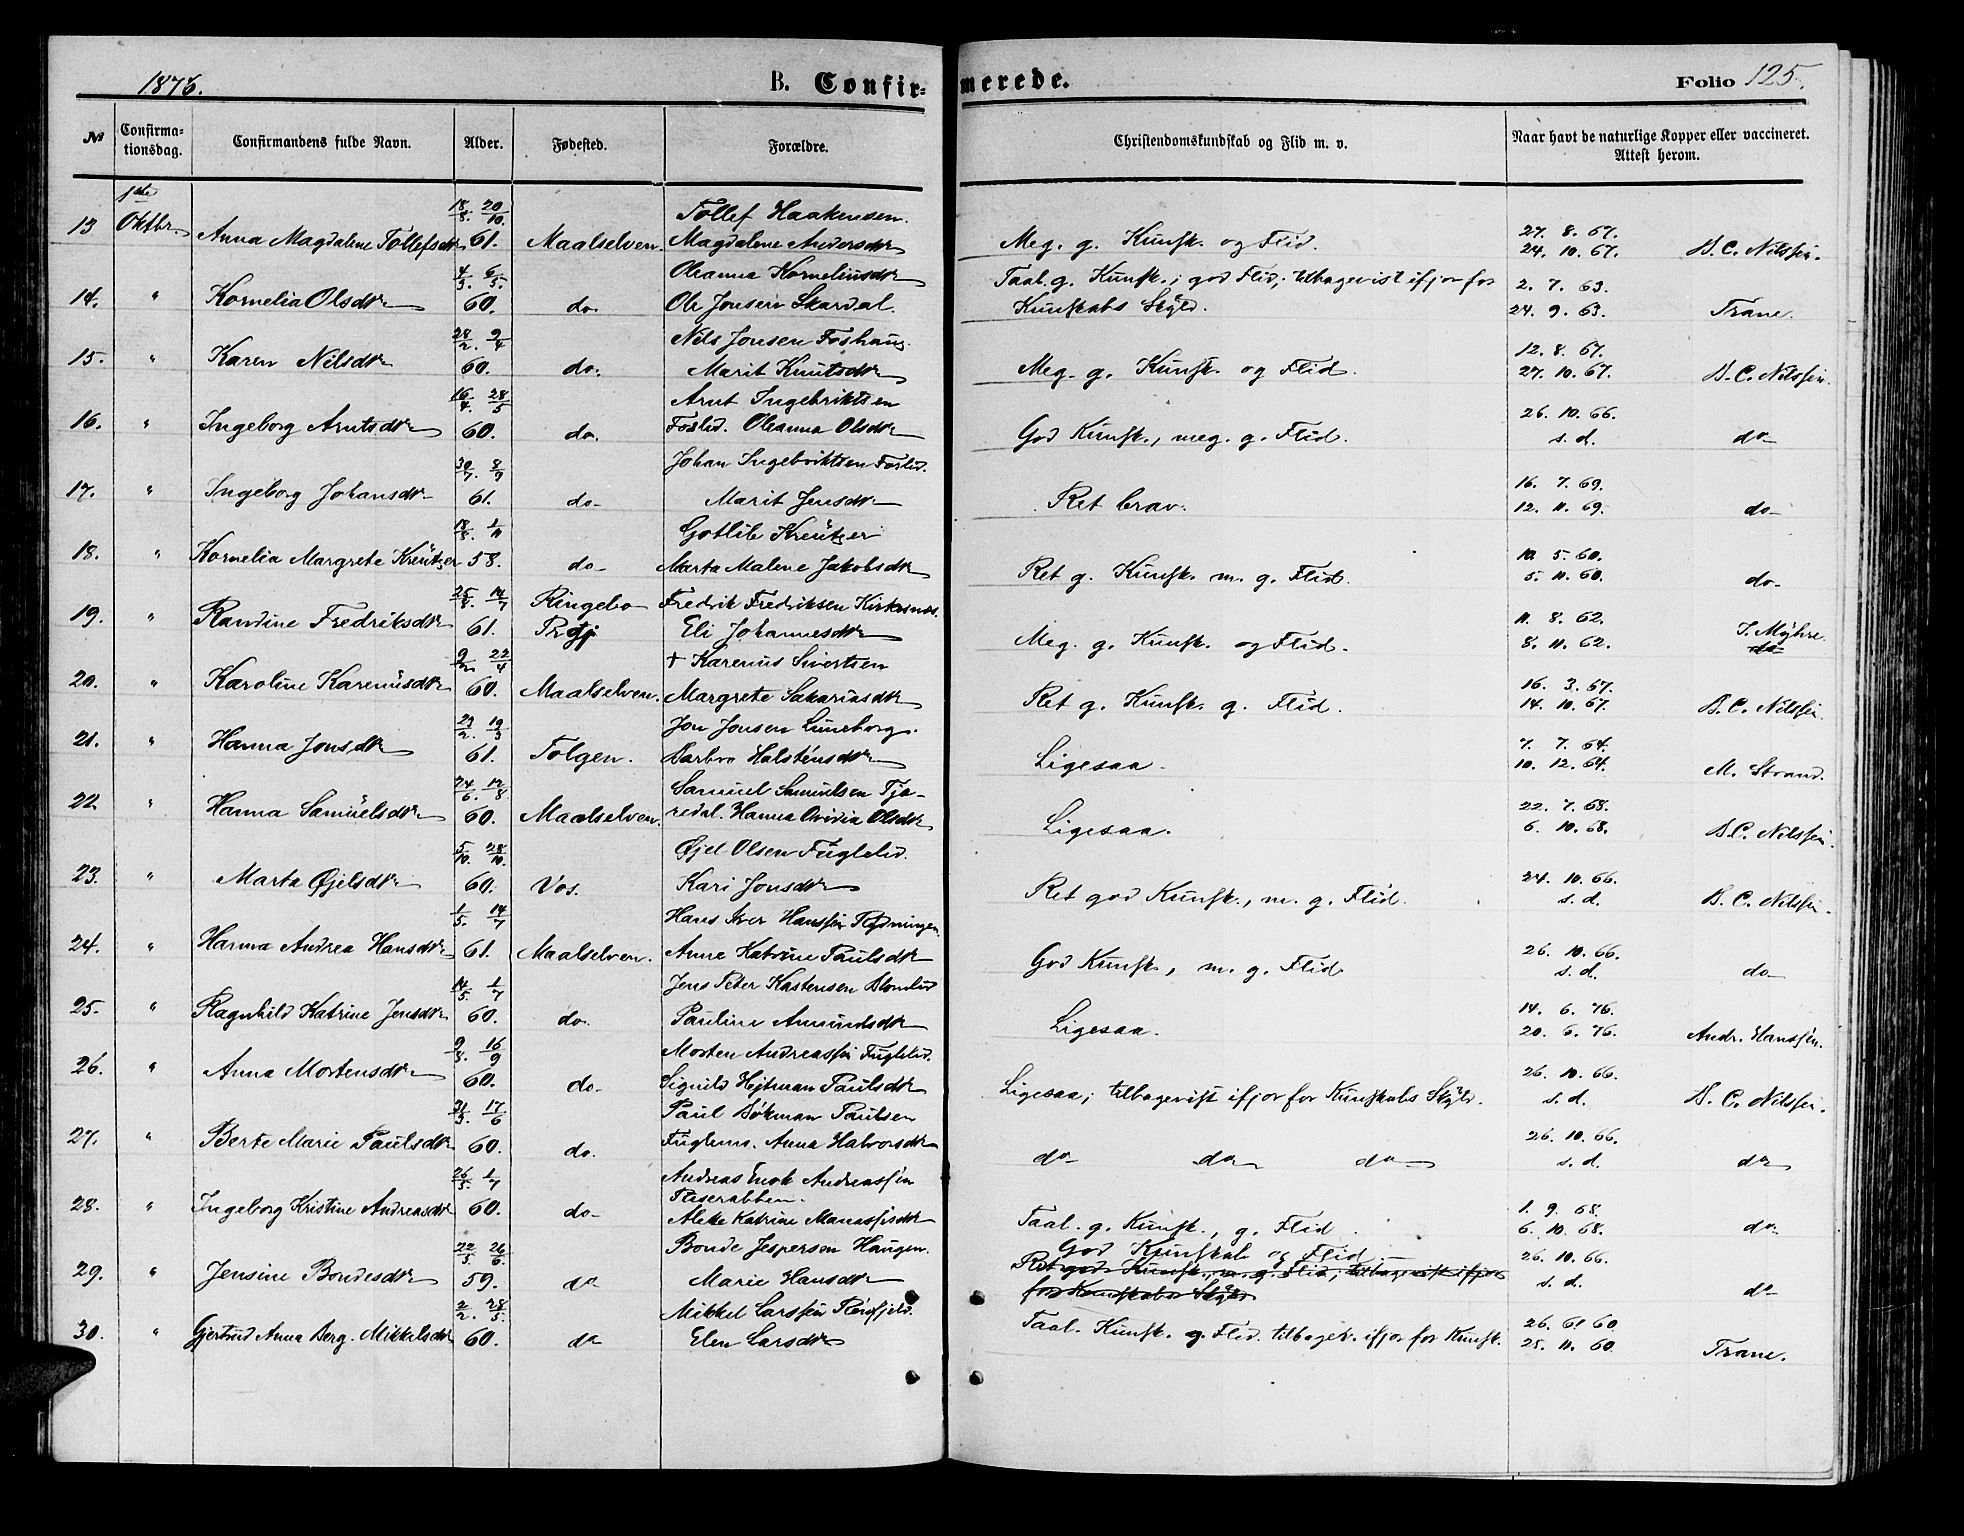 1876. B. Confir= merede. Folio 125.
№ Confirma-tionsdag. Confirmandens fulde Navn. Alder. Fødested. Forældre. Christendomskundskab og Flid m. v. Naar havt de naturlige Kopper eller vaccineret. Attest herom.
1ste
18/8. 20/10. Tollef Haakensen. 27. 8. 67.
13 Oktbr. Anna Magdalene Tollefsdtr 61. Maalselven. Magdalene Andersdtr Meg. g. Kunsk. og Flid. 24. 10. 67. B. C. Nilssen.
4/3. 6/5. Oleanna Korneliusdtr Taal. g. Kunsk.; god Flid; tilbagevist ifjor for 2. 7. 63.
14. " Kornelia Olsdtr 60. do. Ole Jonsen Skardal. Kunskabs Skyld. 24. 9. 63. Trane.
28/2. 9/4 Nils Jonsen Foshaug. 12. 8. 67.
15. " Karen Nilsdtr 60. do. Marit Knutsdtr Meg. g. Kunsk. og Flid. 27. 10. 67. B. C. Nilssen.
16/4. 28/5 Arnt Ingebriktsen 26. 10. 66.
16. " Ingeborg Arntsdtr 60. do. Foslid. Oleanna Olsdtr God Kunsk., meg. g. Flid. s. d. do
30/7. 8/9 Johan Ingebriktsen Foslid. 16. 7. 69.
17. " Ingeborg Johansdtr 61. do Marit Jensdtr Ret brav. 12. 11. 69. do
18/8. 1/11 Gotlib Kreützer 10. 5. 60.
18. " Kornelia Margrete Kreützer 58. do Marta Malene Jakobsdtr Ret g. Kunsk. m. g. Flid. 5. 11. 60. do
14/7 Ringebo Fredrik Fredriksen Kirkesnes. 11. 8. 62. J. Myhre.
19. " Randine Fredriksdtr 61. Prgj Eli Johannesdtr Meg. g. Kunsk. og Flid. 8. 11. 62. do
22/4 + Karenius Sivertsen 16. 3. 67.
20. " Karoline Kareniusdtr 60. Maalselven. Margrete Sakariasdtr Ret g. Kunsk. g. Flid. 14. 10. 67. B. C. Nilssen.
19/3 Jon Jonsen Luneborg. 7. 7. 64.
21. " Hanna Jonsdtr 61. Tolgen. Barbro Halstensdtr Ligesaa. 10. 12. 64. M. Strand.
24/6. 12/8 Samuel Samuelsen Tja- 22. 7. 68.
22 " Hanna Samüelsdtr 60. Maalselven. redal. Hanna Ovidia Olsdtr Ligesaa. 6. 10. 68. B. C. Nilssen.
5/10. 28/10. Øjel Olsen Fuglelid. 24. 10. 66.
23. " Marta Øjelsdtr 60. Vos. Kari Jonsdtr Ret god Kunsk., m. g. Flid. s. d. B. C. Nilssen.
1/5. 14/7 Hans Iver Hanssen Fløtningen. 26. 10. 66.
24. " Hanna Andrea Hansdtr 61. Maalselven. Anne Katrine Paulsdtr God Kunsk., m. g. Flid s. d. do
14/5. 1/7 Jens Peter Kastensen Blomlid 14. 6. 76.
25. " Ragnhild Katrine Jensdtr 60. do. Pauline Amundsdtr Ligesaa. 20. 6. 76. Andr. Hanssen.
9/3. 16/9 Morten Andreassen Fuglelid. 26. 10. 66.
26. " Anna Mortensdtr 60. do. Signild Hejtman Paulsdtr Ligesaa; tilbagevist ifjor for Kunskabs Skyld. s. d. B. C. Nilssen.
17/6 Paul Bökman Paulsen 26. 10. 66.
27. " Berte Marie Paulsdtr 60. do. Anna Halvorsdtr do do do s. d. do
26/5. 1/7 Andreas Enok Andreassen
Fliserabben. 1. 9. 68.
28. " Ingeborg Kristine Andreasdtr 60. do Aleke Katrine Manassisdtr Taal. g. Kunsk., g. Flid. 6. 10. 68. do
22/5. 26/6. Bonde Jespersen Haugen. God Kunskab og Flid 26. 10. 66.
29. " Jensine Bondesdtr 59. do Marie Hansdtr Ret god Kunsk., m. g. Flid; tilbagevist ifjor s. d. do
for Kunskabs Skyld
2/2. 28/5. Mikkel Larssen 26. 61 60.
30. " Gjertrud Anna Berg. Mikkelsdtr 60. do Elen Larsdtr Taal. Kunsk. g. Flid. tilbagev. ifjor for Kunsk. 25. 11. 60. Trane.